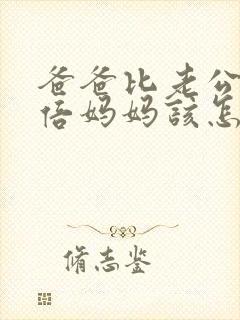 爸爸比老公
倍妈妈該怎
脩志鉴